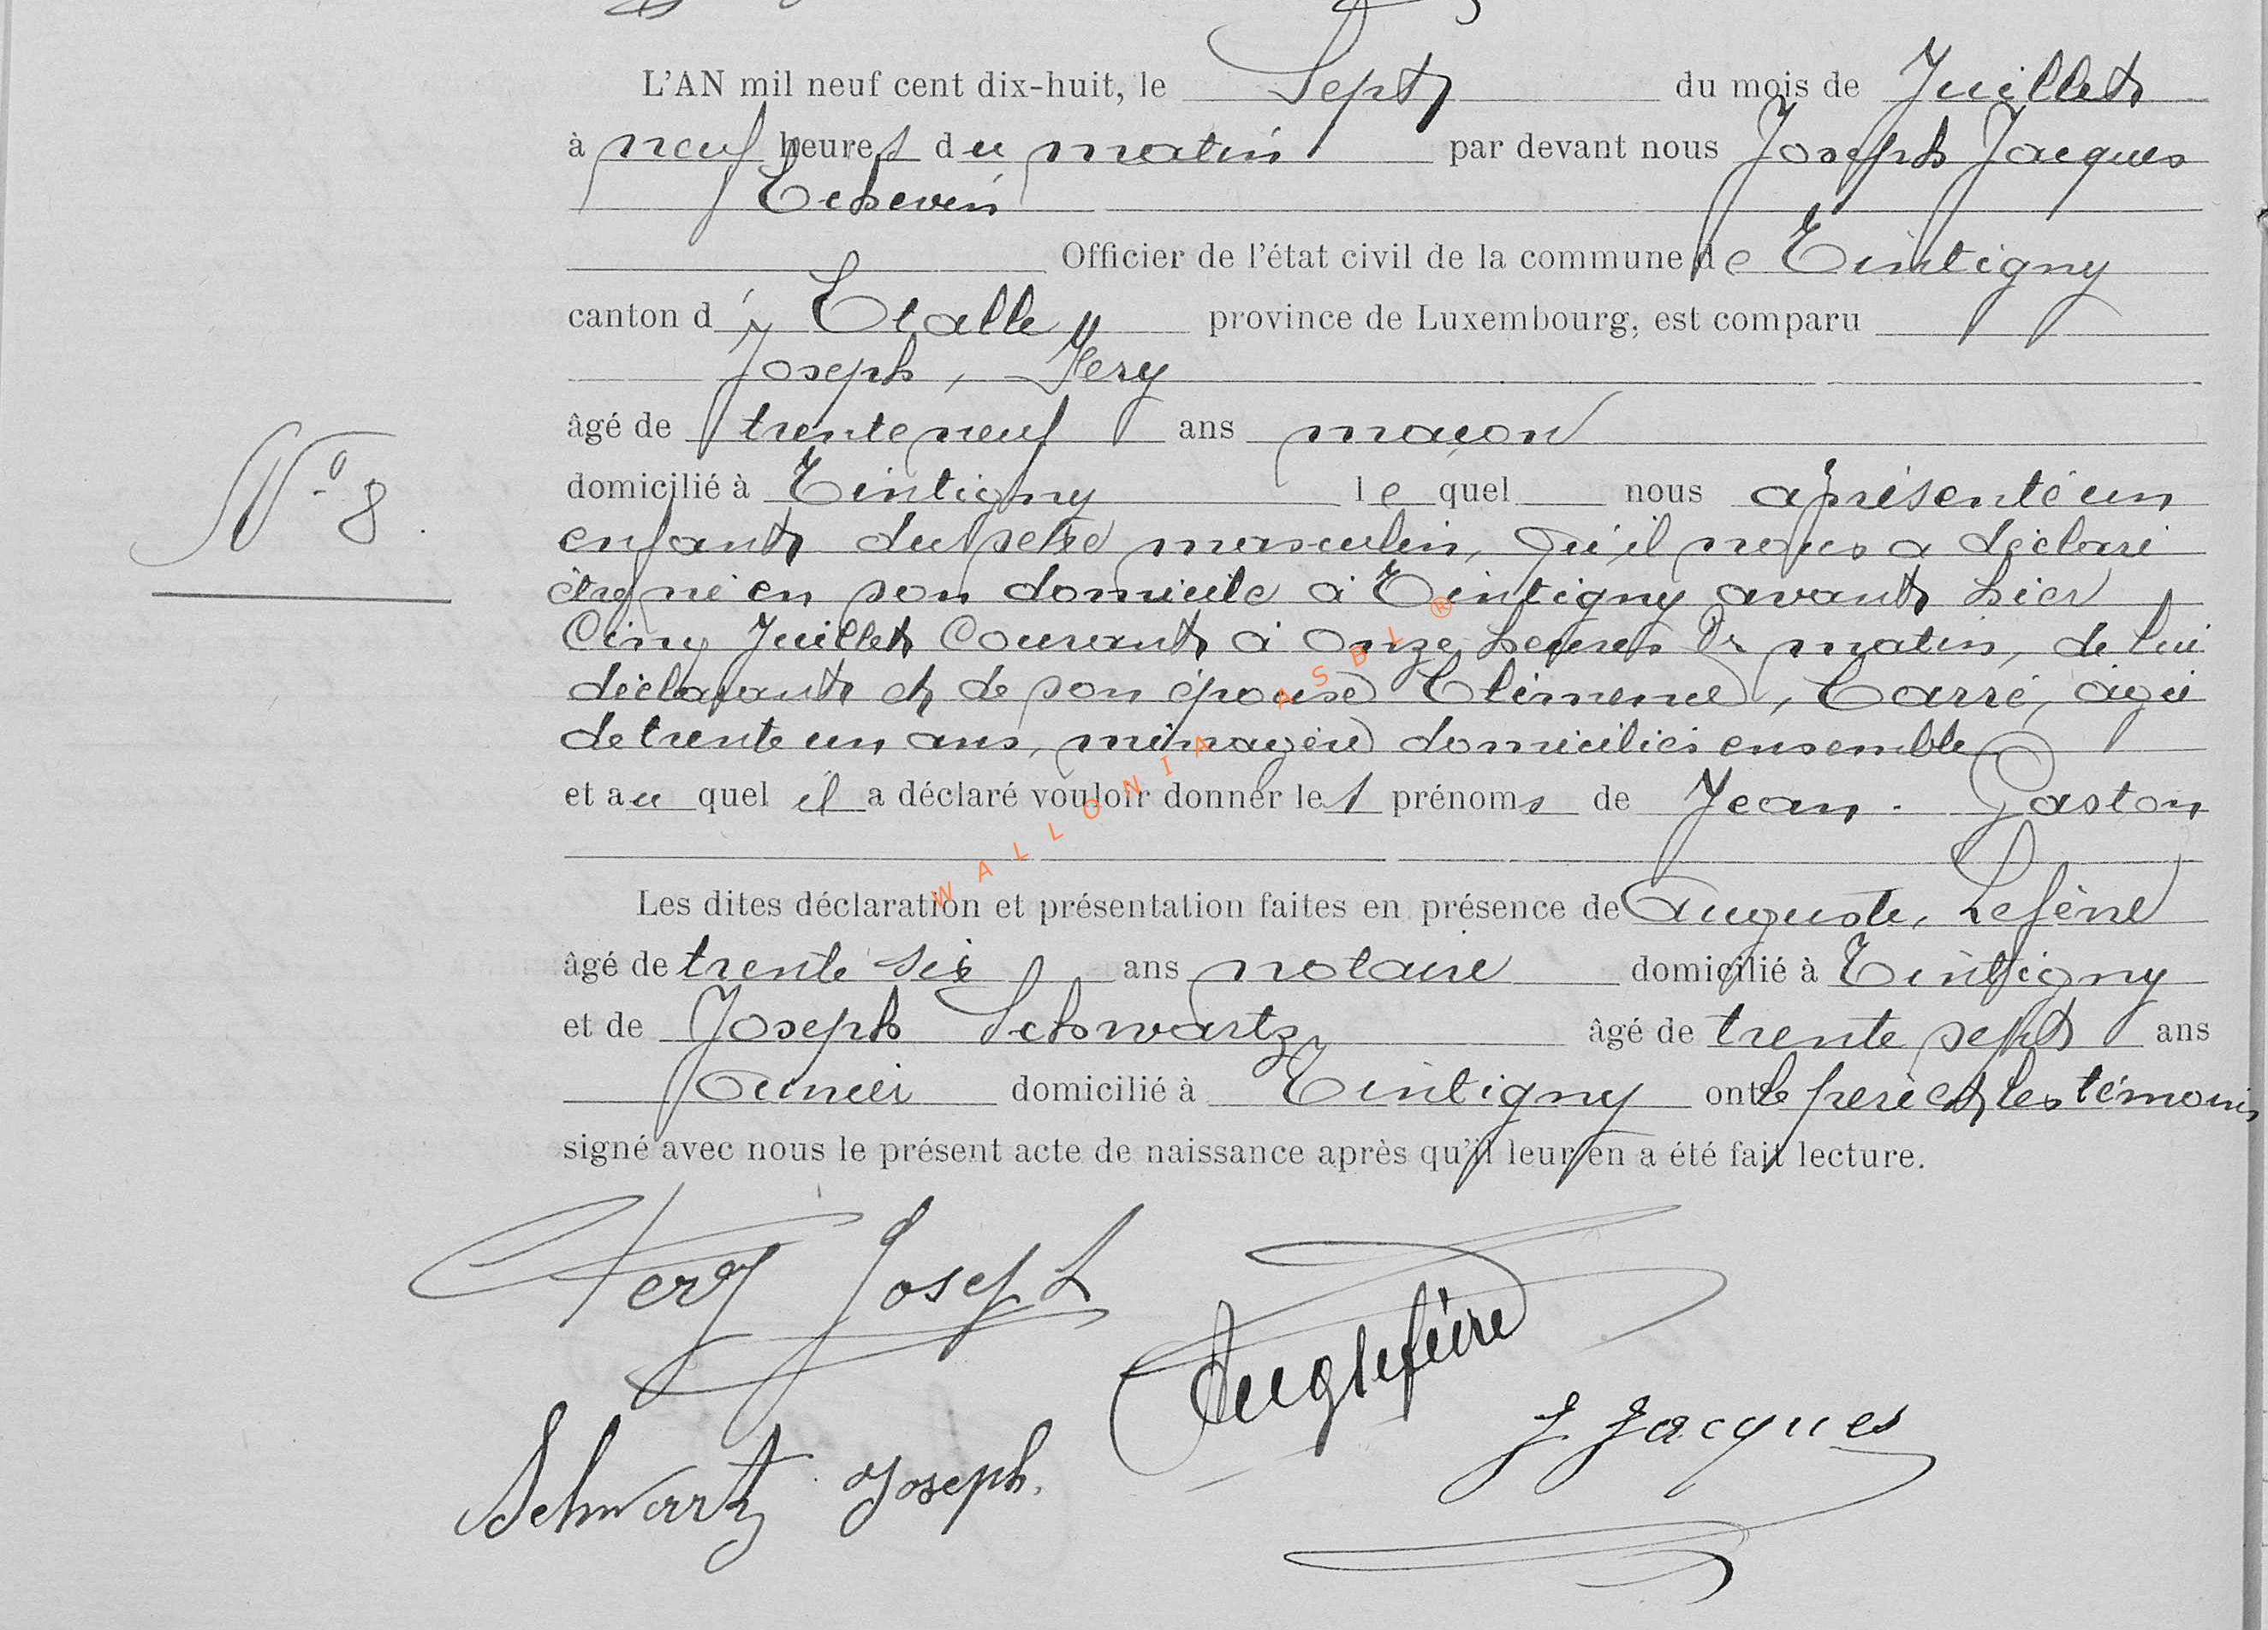 L'AN mil neuf cent dix-huit, le Sept du mois de Juillet
à neuf heures du matin par devant nous Joseph Jacques
Echevin
Officier de l'état civil de la commune de Tintigny
canton d'Etalle province de Luxembourg, est comparu
Joseph, Fery
âgé de trente neuf ans maçon
domicilié à Tintigny lequel nous a présenté un
enfant du sexe masculin, qu'il nous a déclaré
être né en son domicile à Tintigny avant hier
Cinq Juillet Courant à onze heures du matin, de lui
déclarant et de son épouse Clémence, Carré, agée
de trente un ans, ménagère domiciliés ensemble
et au quel il a déclaré vouloir donner les prénoms de Jean. Gaston
Les dites déclaration et présentation faites en présence de Auguste, Lefèvre
âgé de trente six ans notaire domicilié à Tintigny
et de Joseph Schwartz âgé de trente sept ans
domicilié à Tintigny ont le père et les témoins
signé avec nous le présent acte de naissance après qu'il leur en a été fait lecture.
N° 8.
Fery Joseph
Aug Lefèvre
J Jacques
Schwartz Joseph.
WALLONIA ASBL ®